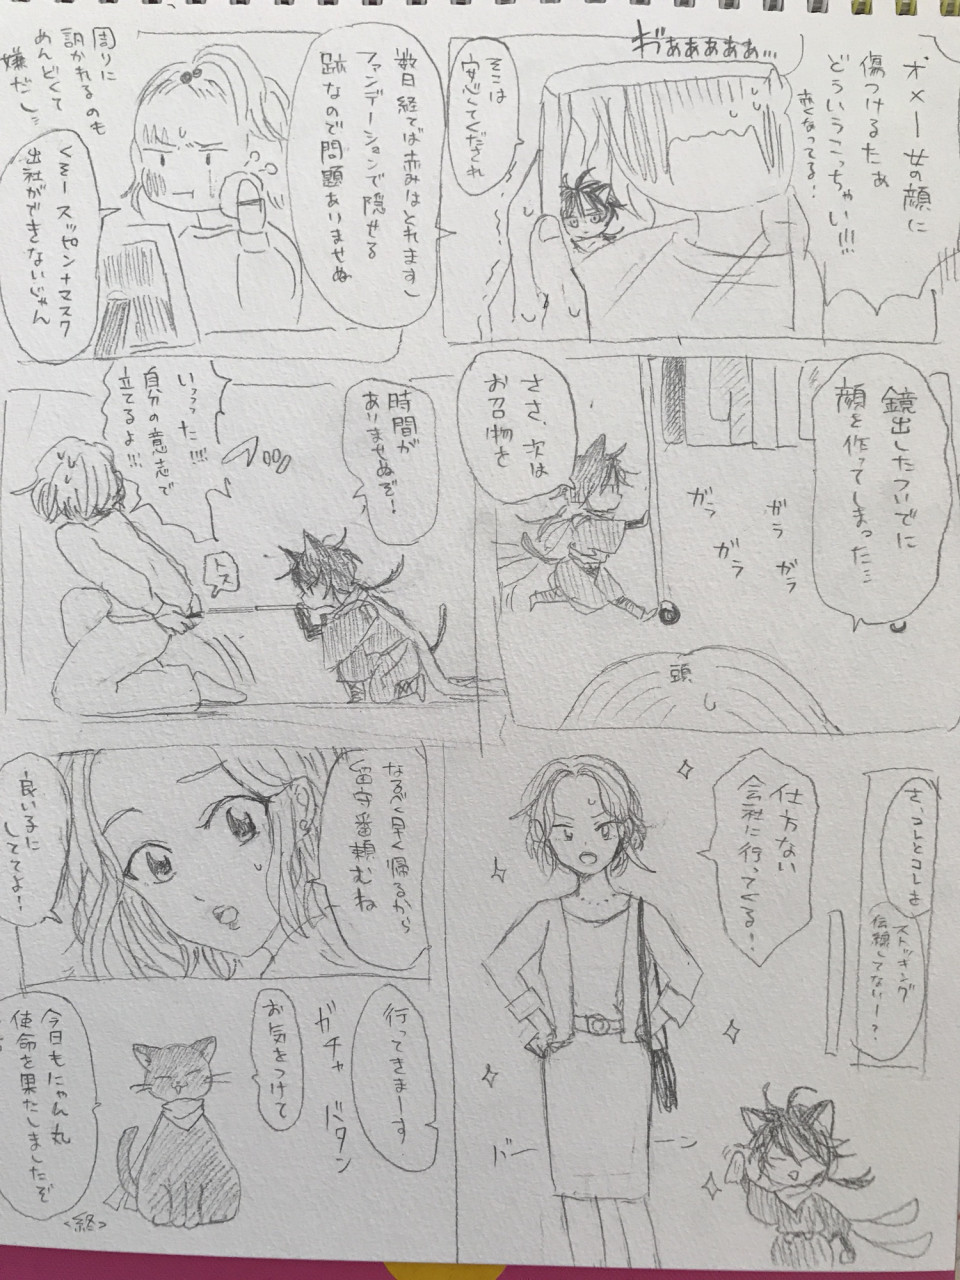 オメー女の顔に
傷つけるたぁ
どういうこっちゃい!!!
赤くなってる!
ぎぁぁぁぁぁぁ…
そこは
安心してくだされ
数日経てば赤みはとれますし
ファンデーションで隠せる
跡なので問題ありませぬ
周りに
訊かれるのも
めんどくて
嫌だし
くそースッピン+マスク
出社ができないじゃん
鏡出したついでに
顔を作ってしまった…
ガラ
ガラ
ガラ
ガラ
頭
ささ、次は
お召物を
時間が
ありませぬぞ!
いっった!!!!
自分の意志で
立てるよ!!!
トス
さ、コレとコレを
ストッキング
伝線してないー?
仕方ない
会社に行ってくる!
ドーーン
なるべく早く帰るから
留守番頼むね
良いるに
しててよ!
行ってきまーす
ガチャ バタン
お気をつけて
今日もにゃん丸
使命を果たしましたぞ
<終>